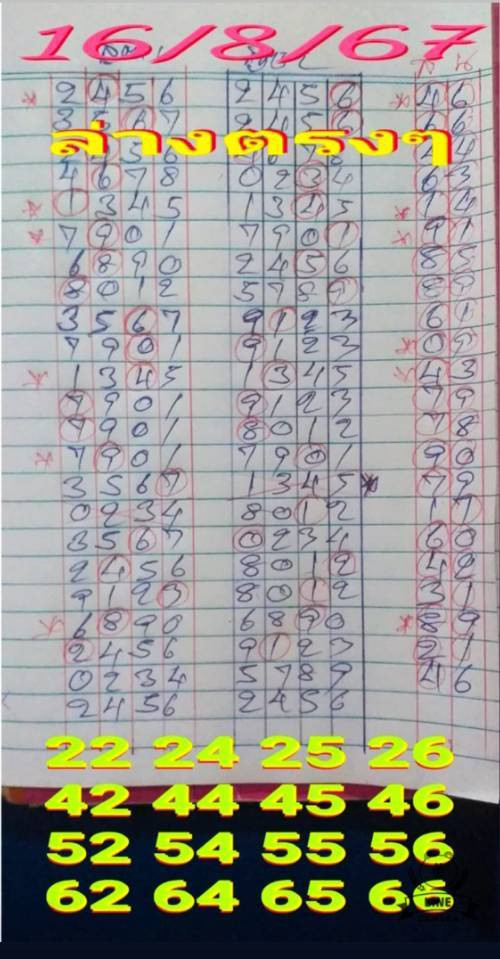 16/8/67
2 4 5 6 2 4 5 6 4 6
ล่างตรงๆ
4 6 7 8 0 2 3 4 6 3
1 3 4 5 1 3 4 5 1 4
7 9 0 1 7 9 0 1 9 1
6 8 9 0 2 4 5 6 8 5
8 0 1 2 5 7 8 9 8 9
3 5 6 7 9 1 2 3 6 1
7 9 0 1 9 1 2 3 0 9
1 3 4 5 1 3 4 5 4 3
7 9 0 1 9 1 2 3 7 9
7 9 0 1 8 0 1 2 7 8
7 9 0 1 7 9 0 1 9 0
3 5 6 7 1 3 4 5 7 9
0 2 3 4 8 0 1 2 1 7
3 5 6 7 0 2 3 4 6 0
2 4 5 6 8 0 1 2 4 2
9 1 2 3 8 0 1 2 3 1
6 8 9 0 6 8 9 0 8 9
2 4 5 6 9 1 2 3 2 1
0 2 3 4 5 7 8 9 4 6
2 4 5 6 2 4 5 6
22 24 25 26
42 44 45 46
52 54 55 56
62 64 65
LINE